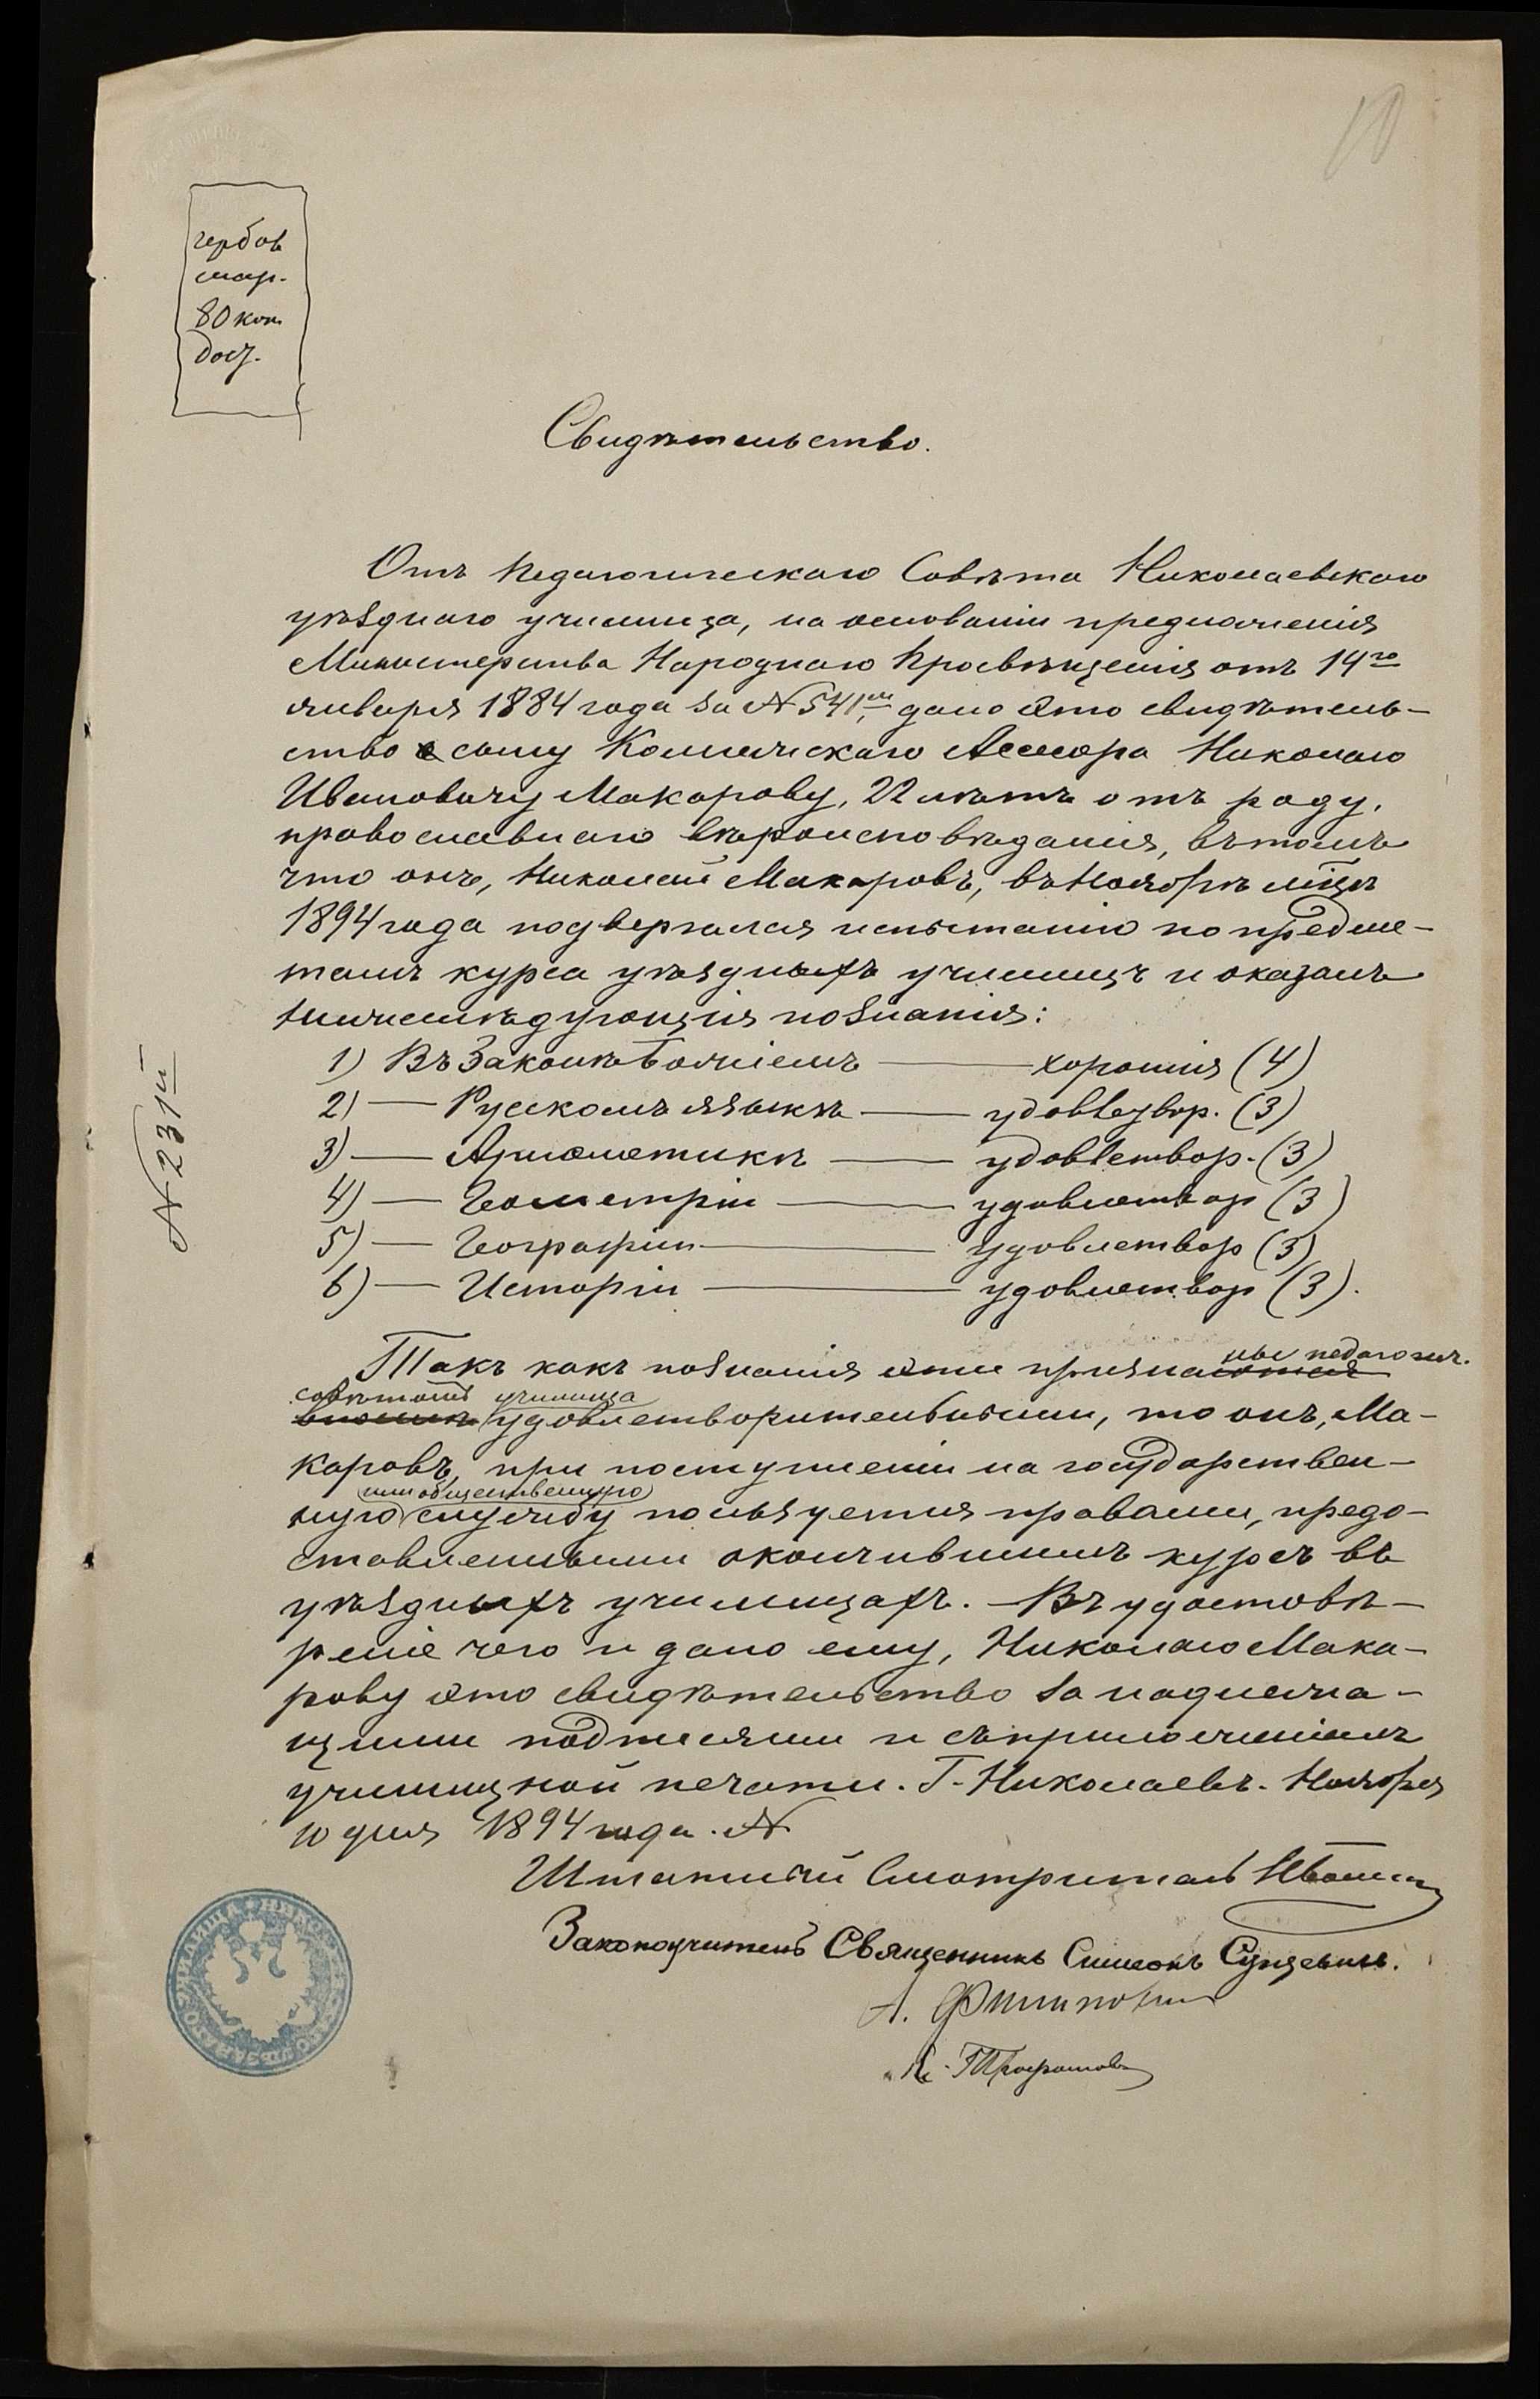 10
гербов
мар.
80 коп
дост.
Свидѣтельство.
Отъ Педагогическаго Совѣта Николаевскаго
уѣзднаго училища, на основаніи предложенія
Министерства Народнаго Просвѣщенія отъ 14го
января 1884 года за № 541м, дано это свидѣтель-
ство сыну Коллежскаго Ассесора Николаю
Ивановичу Макарову, 22 лѣтъ отъ роду,
православнаго вѣроисповѣданія, въ томъ
что онъ, Николай Макаровъ, въ Ноябрѣ мцѣ
1894 года подвергался испытанію по предме-
тамъ курса уѣздныхъ училищъ и оказалъ
нижеслѣдующія познанія:
1) Въ Законѣ Божіемъ — хорошія (4)
2) — Русскомъ языкѣ — удовлетвор. (3)
3) — Ариѳметикѣ — удовлетвор. (3)
4) — Геометріи — удовлетвор (3)
5) — Географіи — удовлетвор (3)
6) — Исторіи — удовлетвор (3).
Такъ какъ познанія эти признаны педагогич.
совѣтомъ училища
удовлетворительными, то онъ, Ма-
каровъ, при поступленіи на государствен-
или общественную
ную службу пользуется правами, предо-
ставленными окончившимъ курсъ въ
уѣздныхъ училищахъ. — Въ удостовѣ-
реніе чего и дано ему, Николаю Мака-
рову это свидѣтельство за надлежа-
щими подписями и съ приложеніемъ
училищной печати. Г. Николаевъ. Ноября
10 дня 1894 года. №
№ 231й
Штатный Смотритель
Законоучитель Священникъ Симеонъ
А.